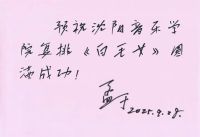 预祝沈阳音乐学
院复排《白毛女》圆
满成功!
孟于
2025.9.28.